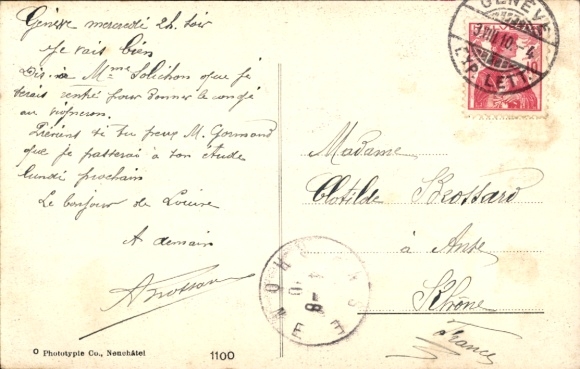 Genève mercredi 2h. soir
Je vais bien
Dis à Mme Solichon que je
serais rentré pour donner le congé
au vigneron.
Préviens si tu peux M. Gormand
que je passerai à son étude
lundi prochain
Le bonjour de Louise
A demain
ABrossard
Madame
Clotilde Brossard
à Anse
Rhône
France
GENÈVE
3.VIII.10.-4
EXP. LETT.
ANSE
RHONE
O Phototypie Co., Neuchâtel
1100